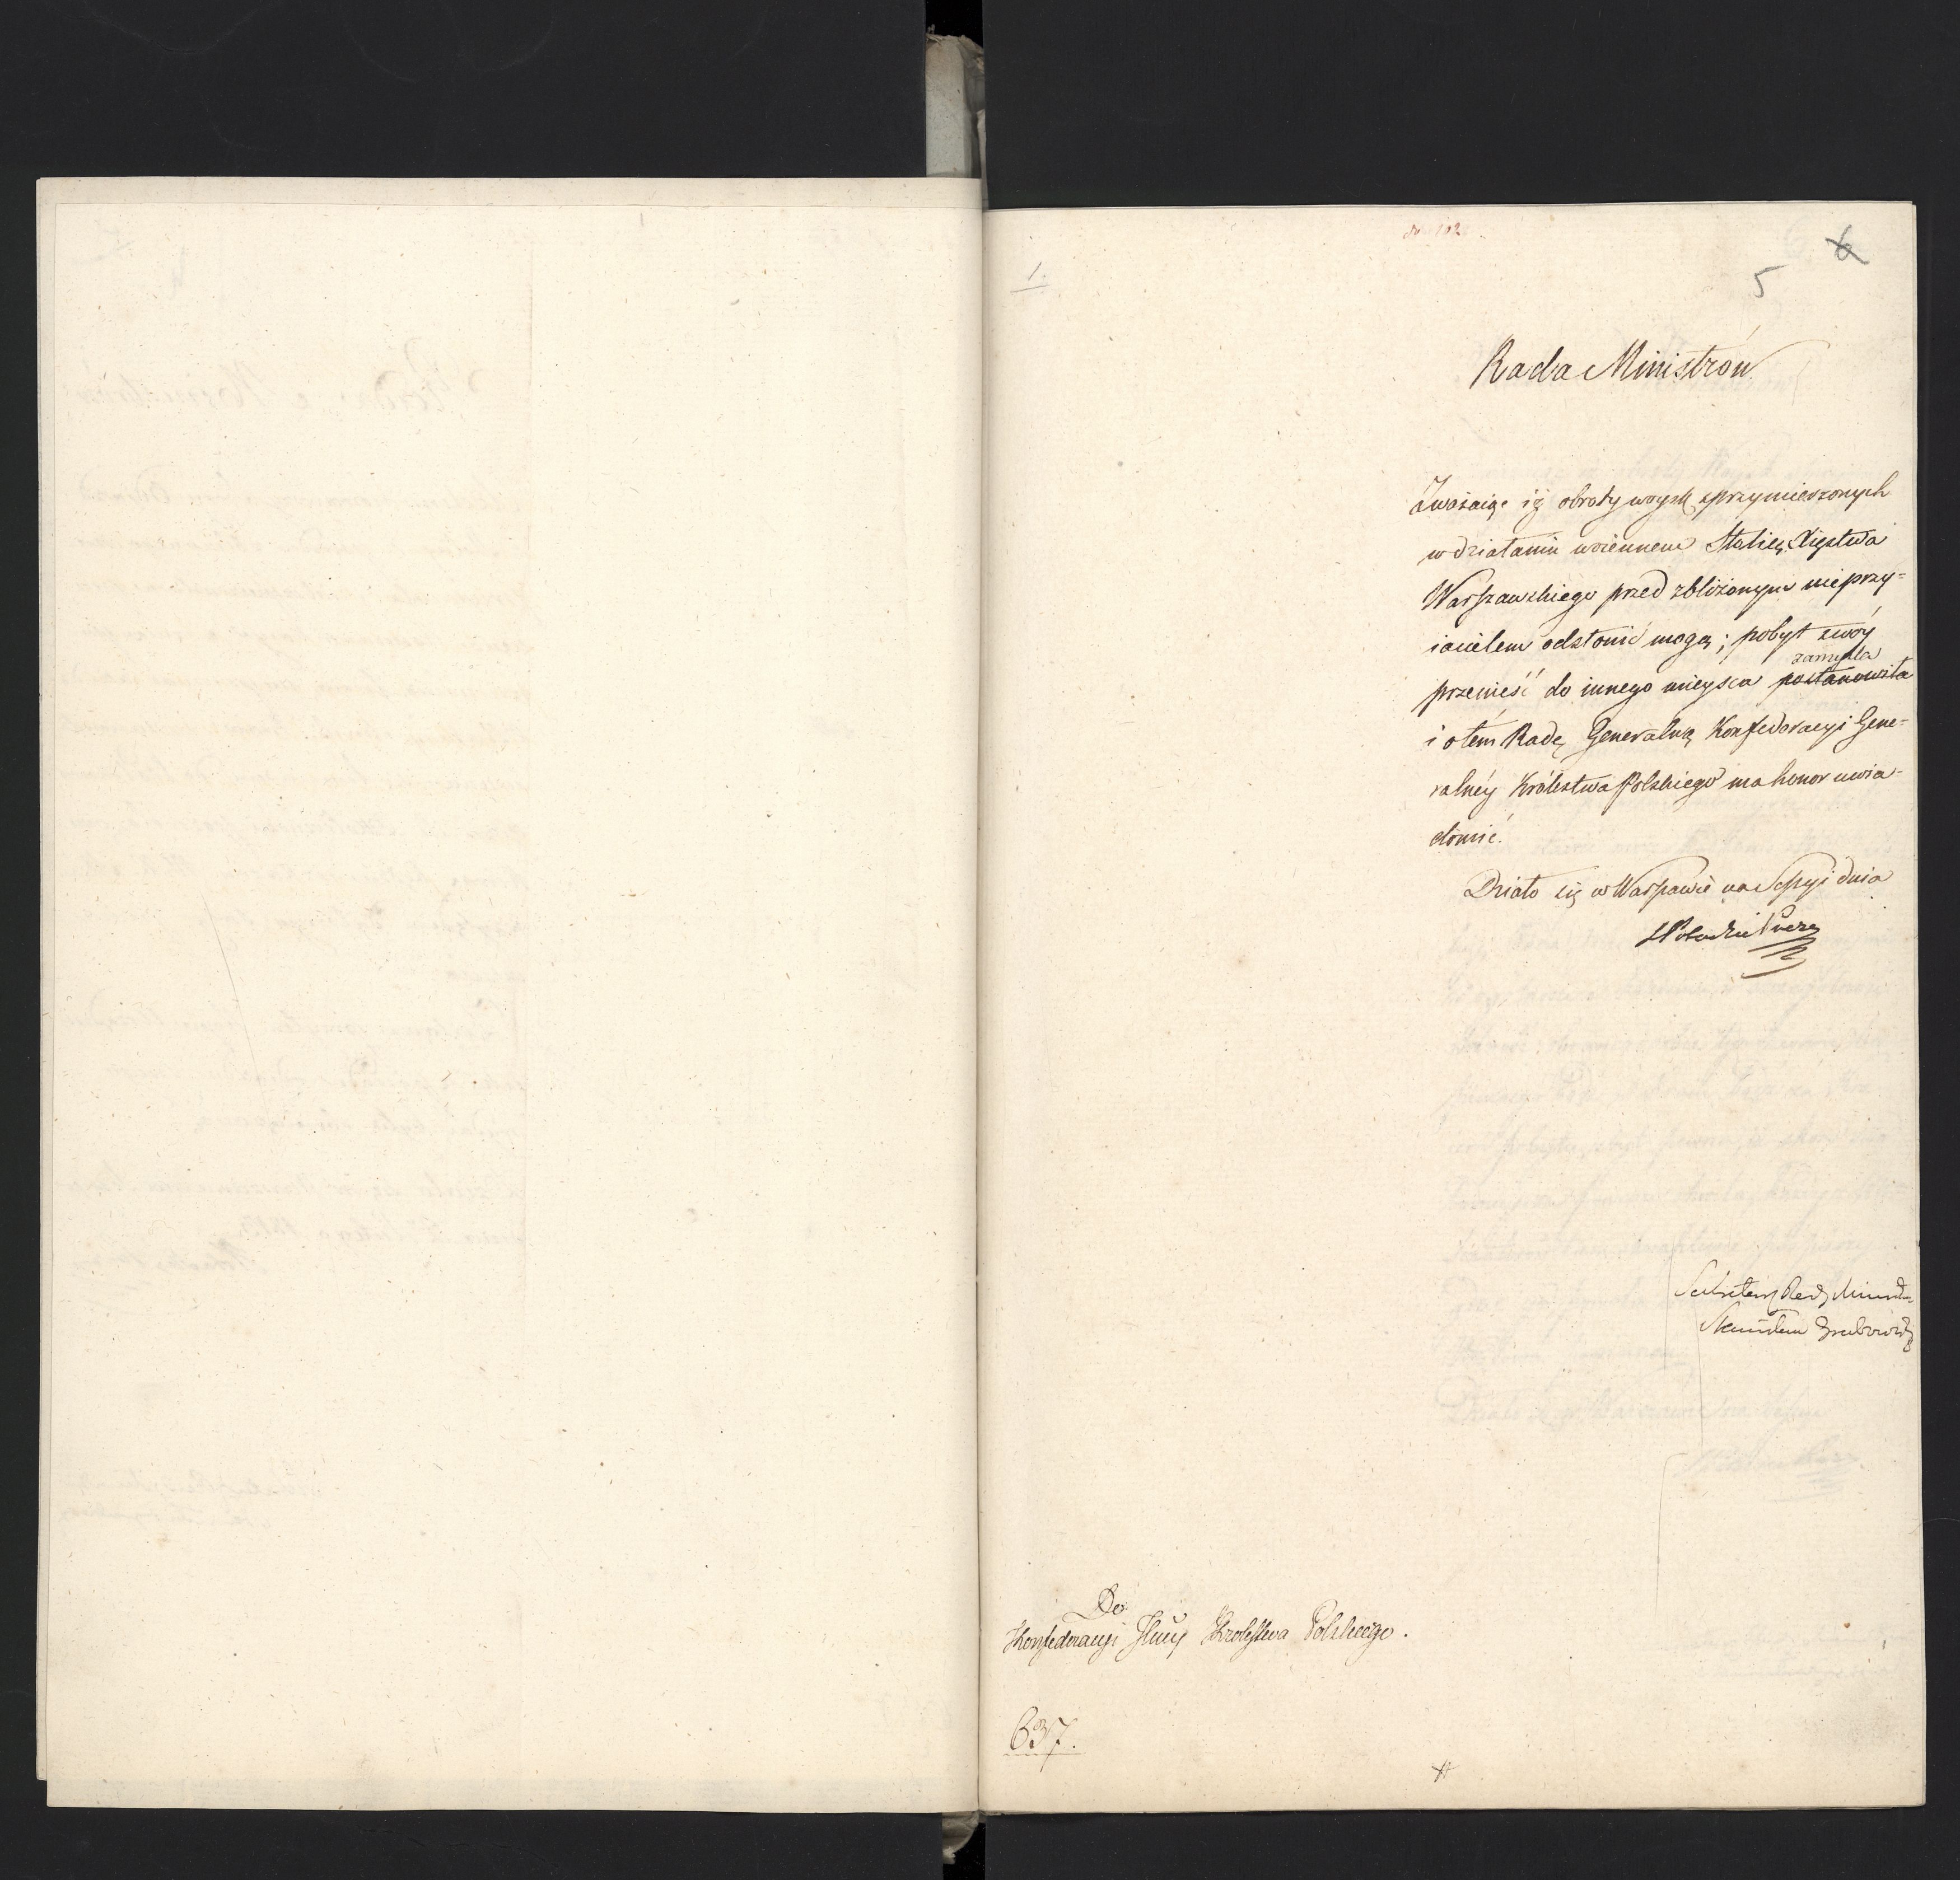 1.
5
6
Rada Ministrów
Zważaiąc iż obroty woysk sprzymierzonych
w działaniu woiennem Stolicę Xięstwa
Warszawskiego przed zbliżonym nieprzy=
iacielem odsłonić mogą; pobyt swóy
zamyśla
przenieść do innego mieysca postanowiła
i otém Radę Generalną Konfederacyi Gene=
ralnéy Królestwa Polskiego ma honor uwia-
domić.
Działo się w Warszawie na Sessyi dnia
Sekretarz Rady Ministr
Stanisław Grabowski
Do
Konfederacyi Jlney Krolestwa Polskiego.
637.